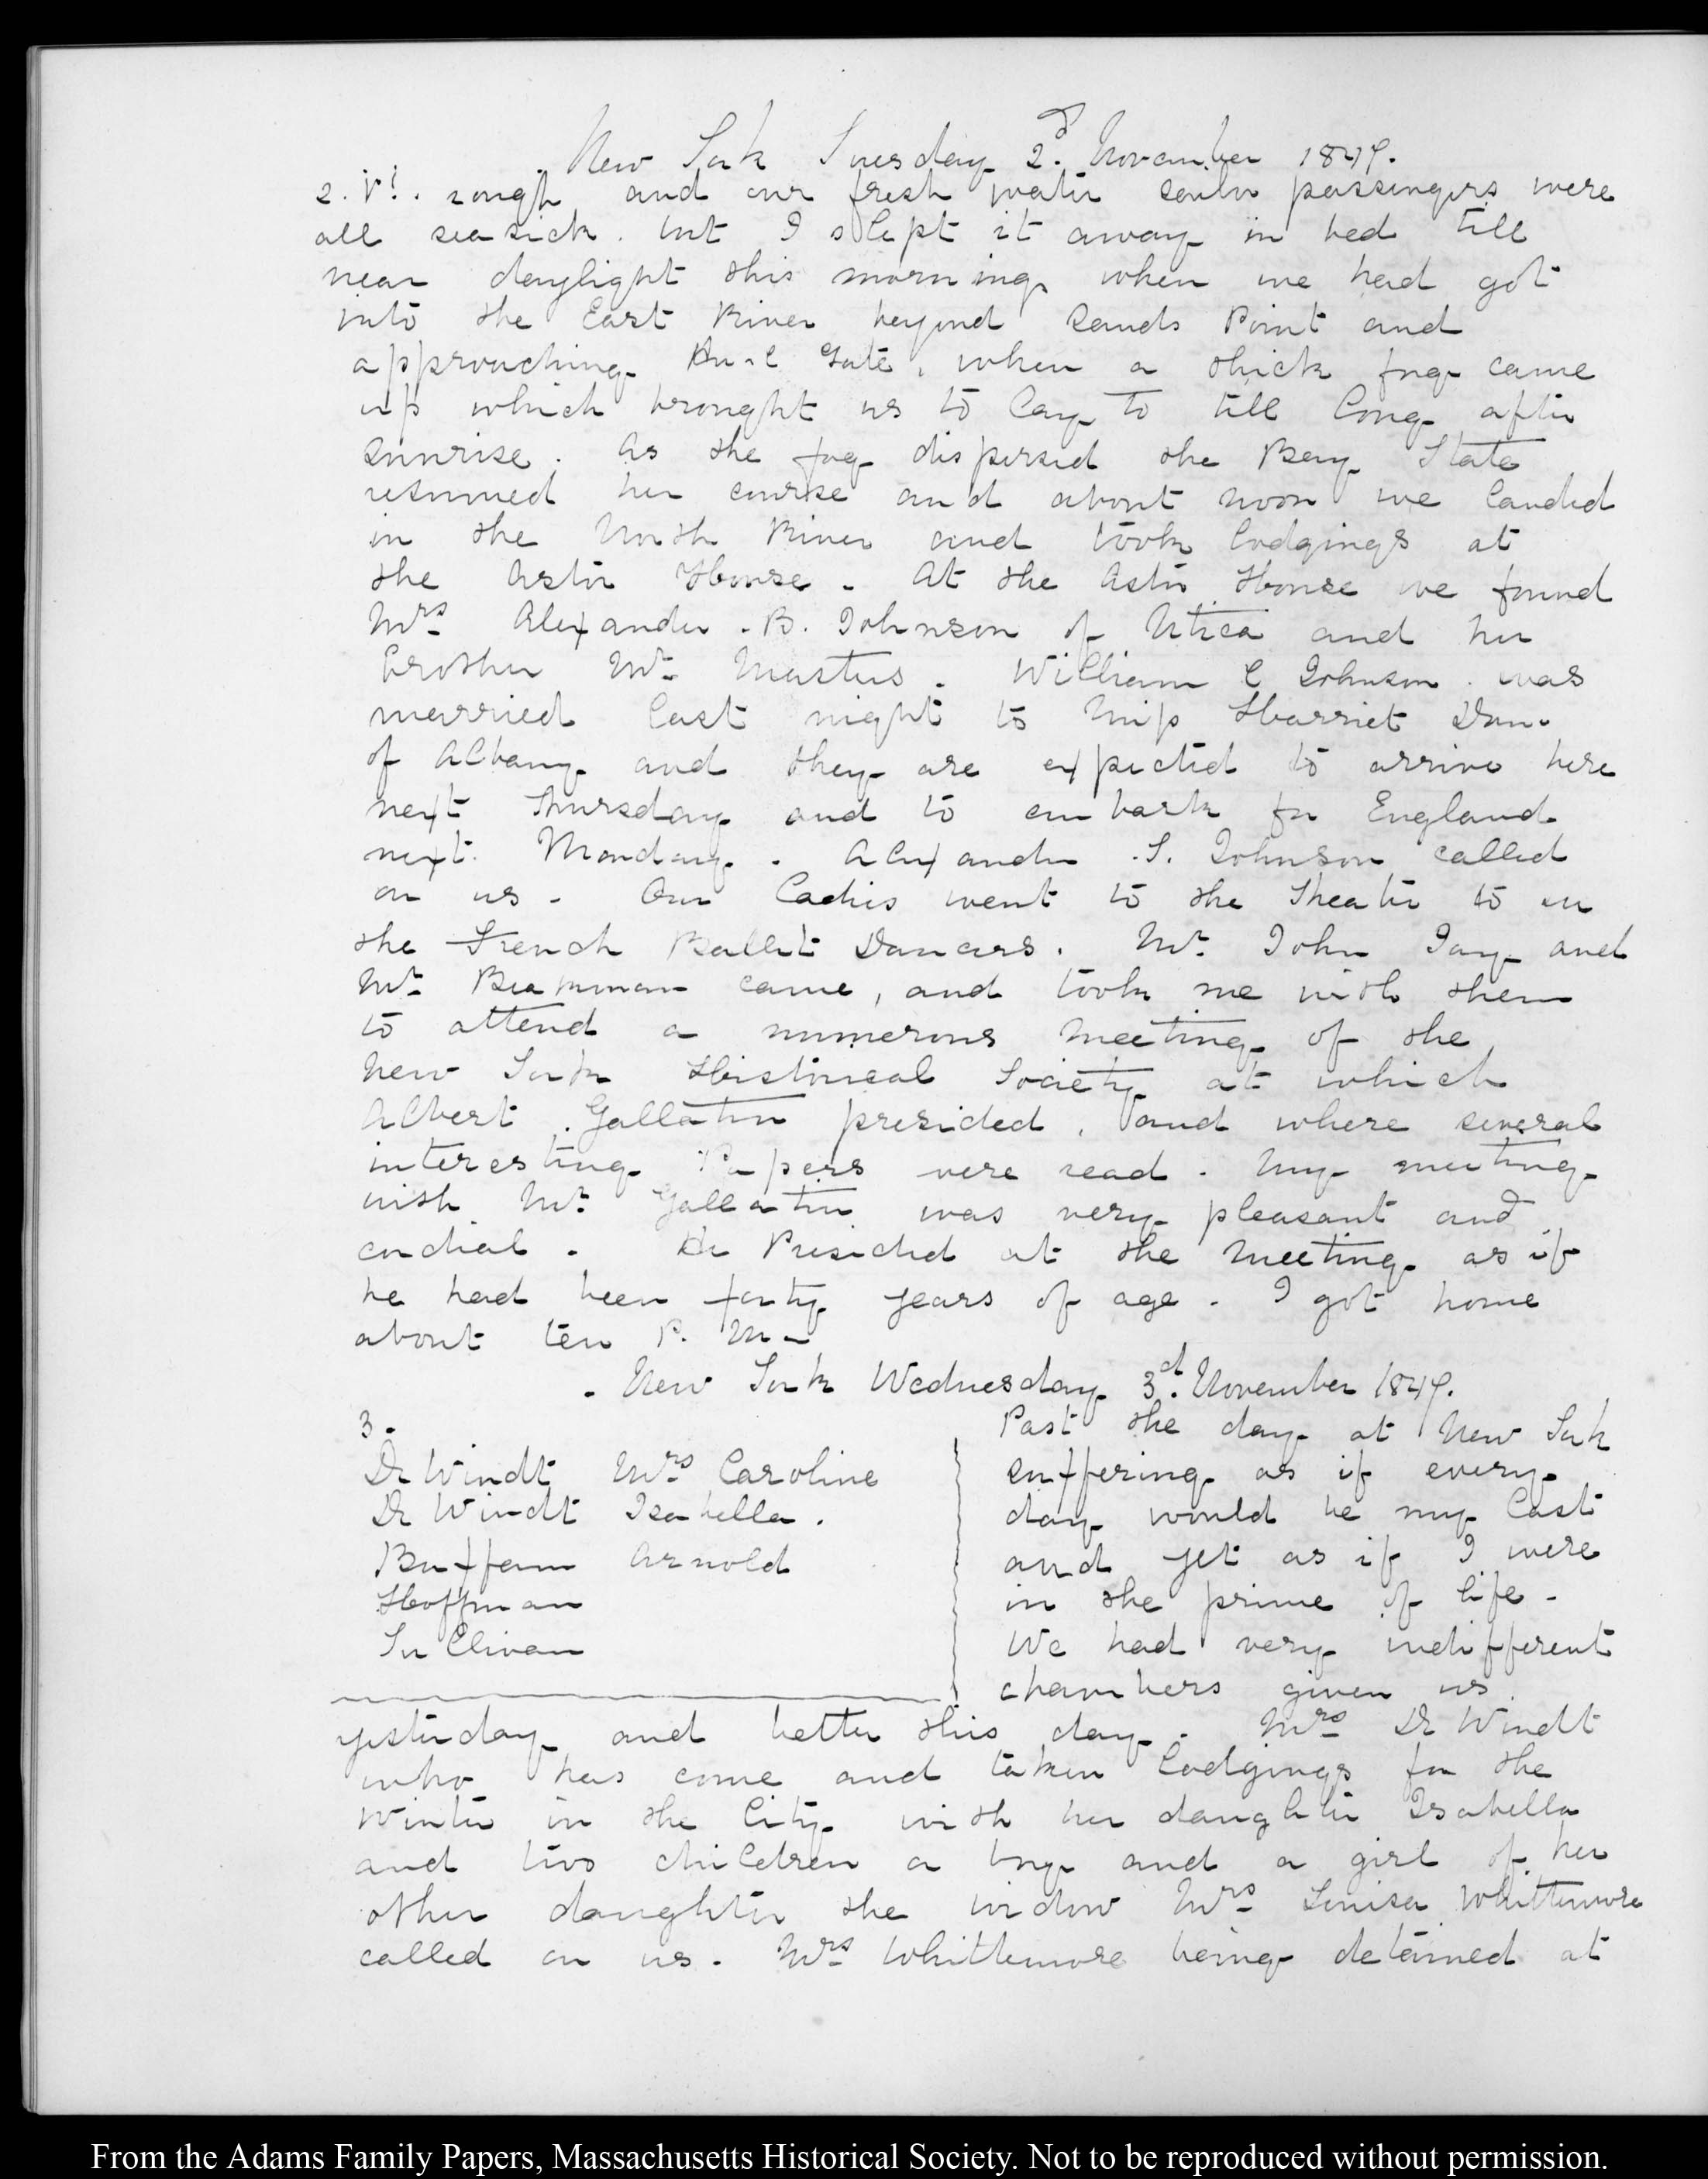 New York Tuesday 2.d November 1847.
2. VI. rough and our fresh water sailor passengers were
all seasick. but I slept it away in bed till
near daylight this morning when we had got
into the East River beyond Sands Point and
approaching Gate, when a thick fog came
up which brought us to lay to till long after
sunrise. As the fog dispersed the Bay State
resumed her course and about noon we landed
in the North River and took lodgings at
the Astor House. At the Astor House we found
Mrs Alexander B. Johnson of Utica and her
brother Mr Masters. William C Johnson was
married last night to Miss Harriet
of Albany and they are expected to arrive here
next Thursday and to embark for England
next Monday. Alexander S. Johnson called
on us. Our Ladies went to the Theatre to see
the French Ballet Dancers. Mr John Jay and
Mr Beekman came, and took me with them
to attend a numerous meeting of the
New York Historical Society at which
Albert Gallatin presided, and where several
interesting Papers were read. My meeting
with Mr Gallatin was very pleasant and
cordial. He Presided at the meeting as if
he had been forty years of age. I got home
about ten P. M.
New York Wednesday 3.d November 1847.
3.
De Windt Mrs Caroline
De Windt Isabella.
Buffum Arnold
Hoffman
Sullivan
Past the day at New York
suffering as if every
day would be my last
and yet as if I were
in the prime of life.
We had very indifferent
chambers given us
yesterday and better this day. Mrs De Windt
who has come and taken lodgings for the
Winter in the City with her daughter Isabella
and two children a boy and a girl of her
other daughter the widow Mrs Louisa Whittemore
called on us. Mrs Whittemore being detained at
From the Adams Family Papers, Massachusetts Historical Society. Not to be reproduced without permission.